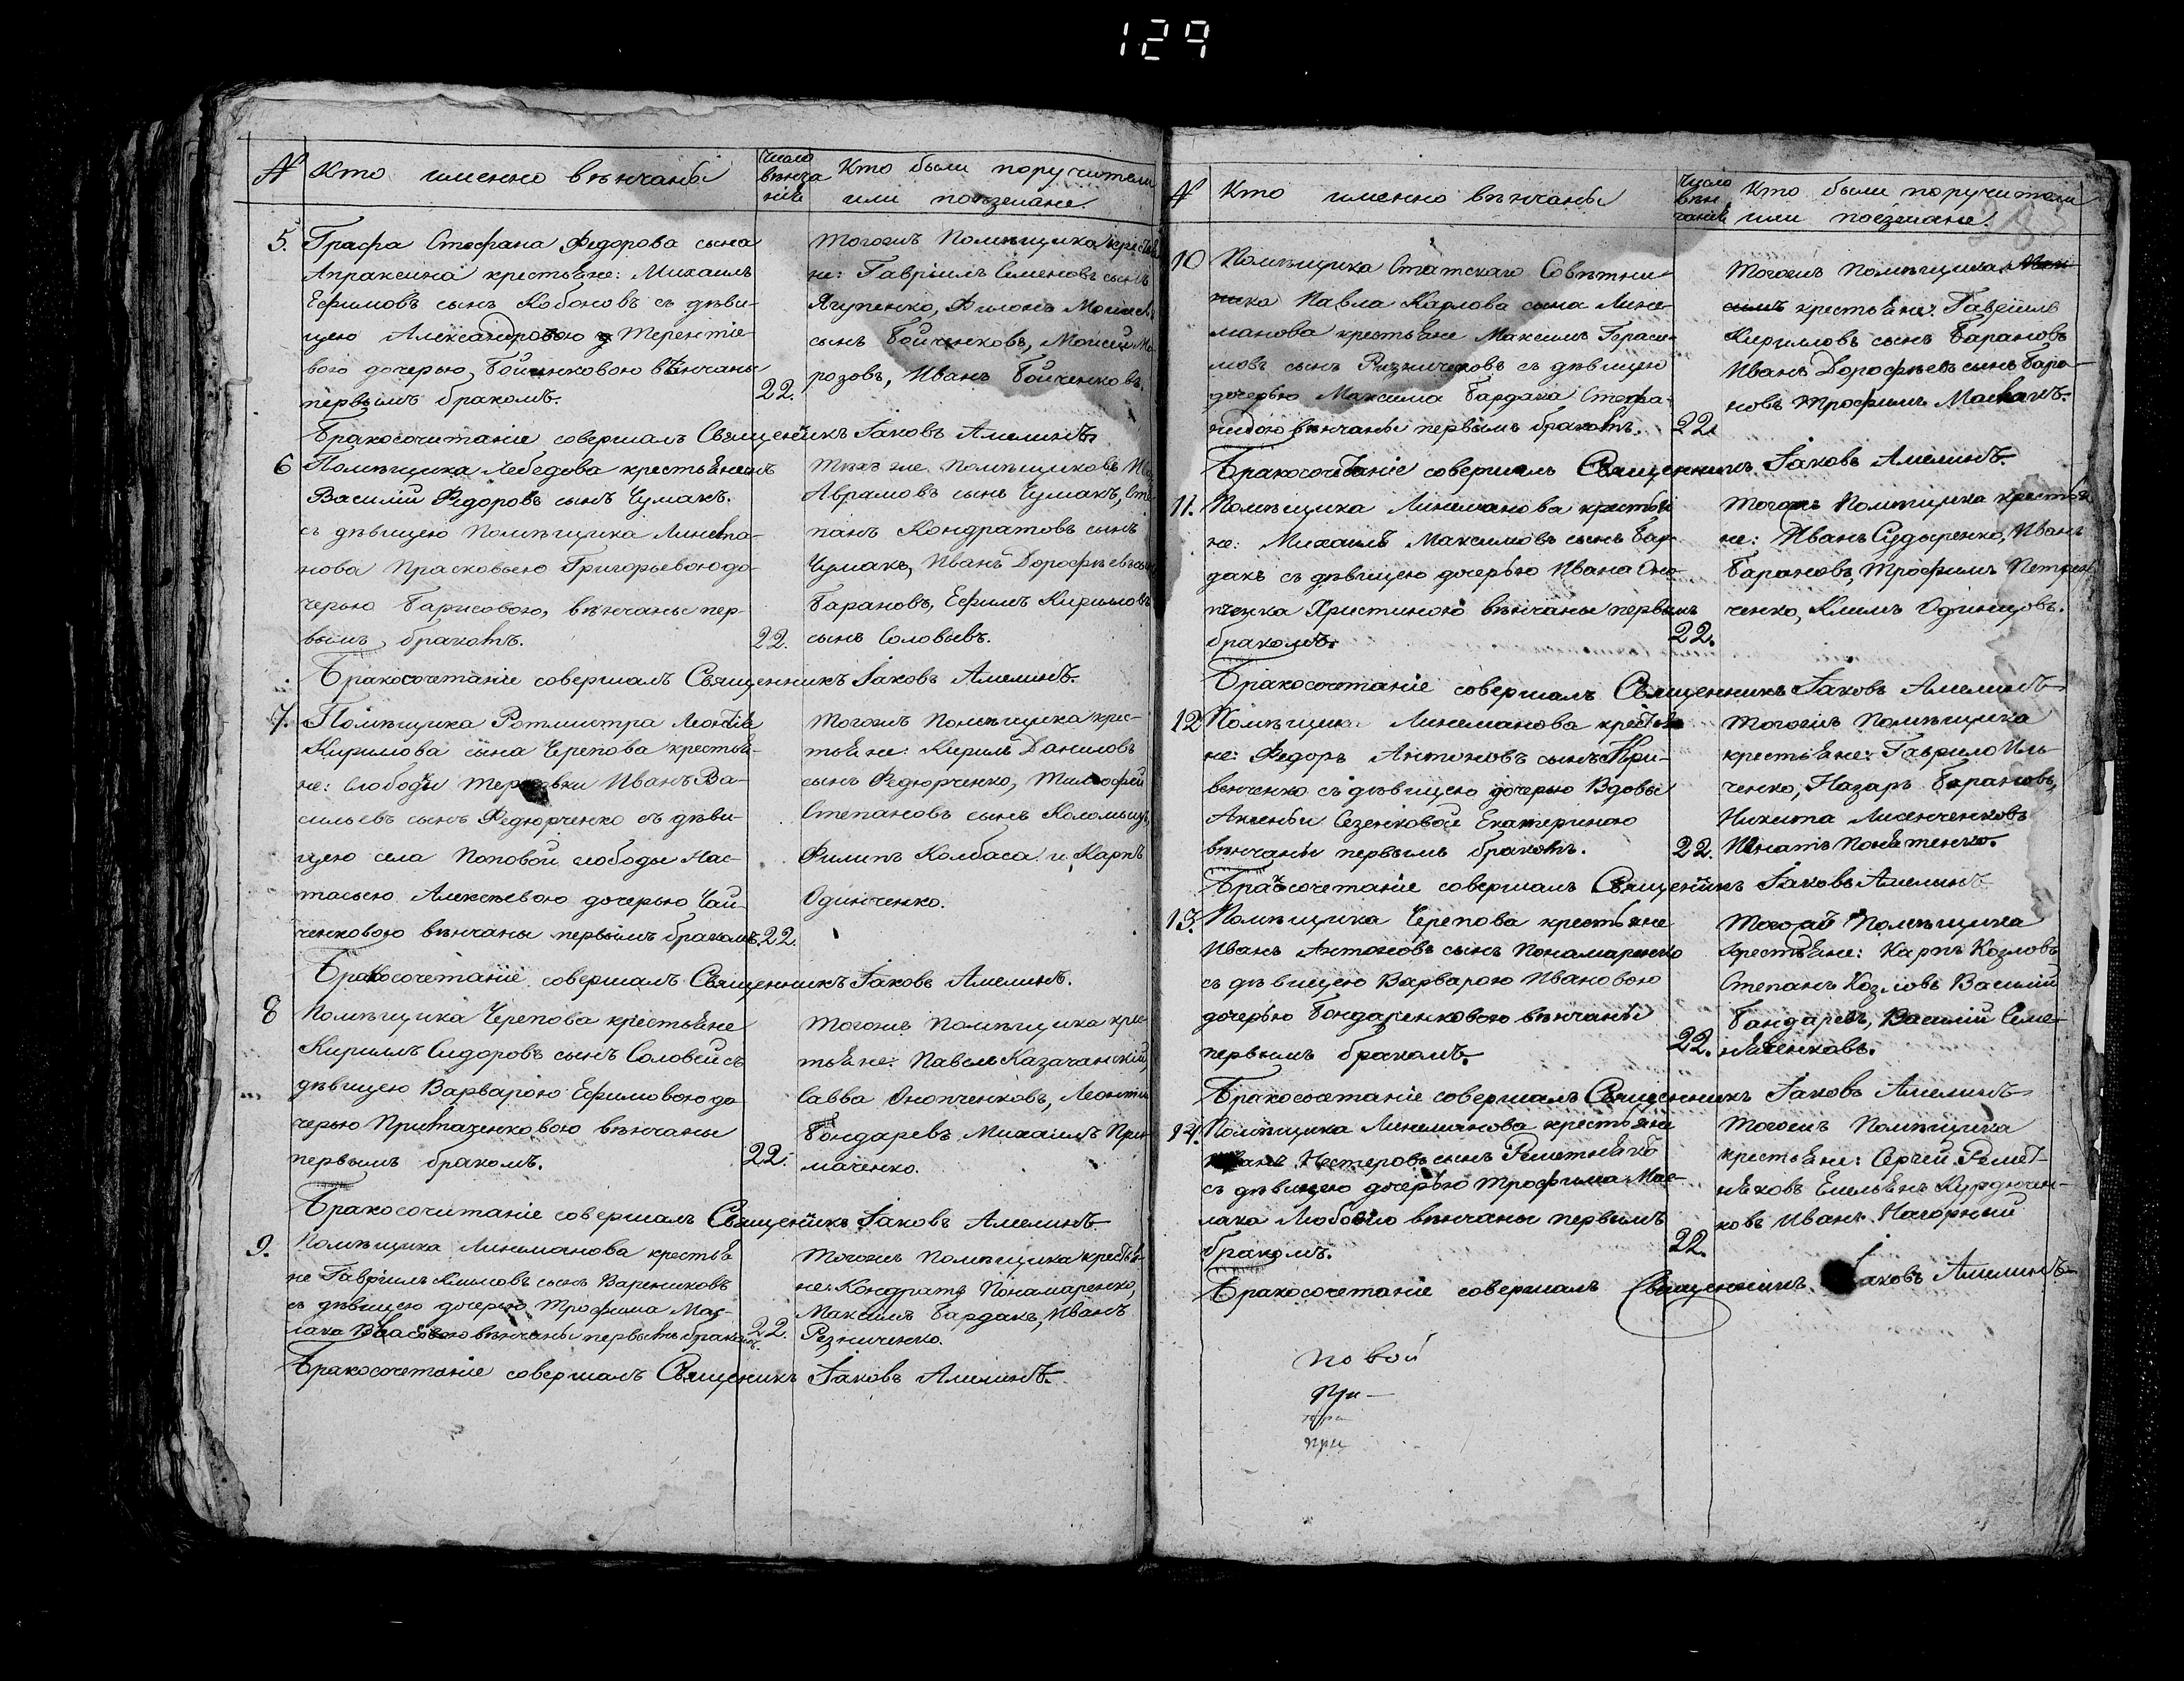 129
№ Кто именно вѣнчаны
Число вѣнча нія
Кто были поручители
или поѣзжане.
5. Графа Стефана Федорова сына
Апраксина крестьяне: Михаилъ
Ефимовъ сынъ Кобоновъ съ дѣви-
цею Александрою Терентіе-
вою дочерью, Бойченковою вѣнчаны
первымъ бракомъ.
22.
Тогожъ Помѣщика крестья
не: Гавріилъ Семеновъ сынъ
Ягупенко, Филонъ
сынъ Бойченковъ, Моисей Мо-
розовъ, Иванъ Бойченковъ.
Бракосочитаніе совершалъ Священикъ Іаковъ Амелинъ
6 Помѣщика Лебедева крестьянинъ
Василій Федоровъ сынъ Чумакъ.
съ дѣвицею Помѣщика Линема-
нова Прасковьею Григорьевою до-
черью Барисовою, вѣнчаны пер-
вымъ бракомъ.
22.
Тѣхъ же Помѣщиковъ
Аврамовъ сынъ Чумакъ, Сте-
панъ Кондратовъ сынъ
Чумакъ, Иванъ Дорофѣевъ сынъ
Барановъ, Ефимъ Кириловъ
сынъ Соловьевъ.
Бракосочетаніе совершалъ Священникъ Іаковъ Амелинъ.
7. Помѣщика Ротмистра Леонтія
Кирилова сына Черепова крестья-
не: слободы Терновки Иванъ Ва-
сильевъ сынъ Федюрченко съ дѣви-
цею села Поповой слободы Нас-
тасьею Алексѣевою дочерью Чай-
ченковою вѣнчаны первымъ бракомъ.
22.
Тогожъ Помѣщика крес-
тьяне: Кирилъ Даниловъ
сынъ Федюрченко, Тимофей
Степановъ сынъ Коломыцъ,
Филипъ Колбаса и Карпъ
Одинченко.
Бракосочетаніе совершалъ Священникъ Іаковъ Амелинъ.
8 Помѣщика Черепова крестьяне
Кирилъ Сидоровъ сынъ Соловей съ
дѣвицею Варварою Ефимовою до
черью Примаченковою вѣнчаны
первымъ бракомъ.
22.
Тогожъ Помѣщика крес-
тьяне: Павелъ Казачанский,
Савва Онопченковъ, Леонтій
Бондаревъ Михаилъ При-
маченко.
Бракосочитаніе совершалъ Священикъ Іаковъ Амелинъ
9. Помѣщика Линеманова крестья
не Гавріилъ Климовъ сынъ Варениковъ
съ дѣвицею дочерью Трофима Мас-
лака вѣнчаны первымъ бракомъ.
22.
Тогожъ Помѣщика крестья-
не: Кондратъ Пономаренко,
Максимъ Бардакъ, Иванъ
Резниченко.
Бракосочетаніе совершалъ Священикъ Іаковъ Амелинъ.
№ Кто именно вѣнчаны
Число вѣн чанія
Кто были поручители
или поезжане.
10 Помѣщика Статскаго Совѣтни-
ника Павла Карлова сына Лине-
манова крестьяне Максимъ Гераси-
мовъ сынъ Ризниченковъ съ дѣвицею
дочерью Максима Бардака Стефа-
нидою вѣнчаны первымъ бракомъ.
22.
Тогожъ помѣщика
крестьяне: Гавріилъ
Кирилловъ сынъ Барановъ
Иванъ Дорофѣевъ сынъ Бара-
новъ Трофимъ Маслакъ.
Бракосочетаніе совершалъ Священникъ Іаковъ Амелинъ.
11. Помѣщика Линеманова крестья
не: Михаилъ Максимовъ сынъ Бар-
дакъ съ дѣвицею дочерью Ивана Оно-
пченка Христиною вѣнчаны первымъ
бракомъ.
22.
Тогожъ Помѣщика крестья
не: Иванъ Судыренко, Иванъ
Барановъ, Трофимъ
ченко, Климъ Одинцовъ.
Бракосочетаніе совершалъ Священникъ Іаковъ Амелинъ
12 Помѣщика Линеманова крестья
не: Федоръ Антоновъ сынъ Кри-
венченко съ дѣвицею дочерью Вдовы
Аксиньи Сезенковой Екатериною
вѣнчаны первымъ бракомъ.
22.
Тогожъ Помѣщика
крестьяне: Гаврило Иль-
ченко, Назаръ Барановъ,
Никита Лисенченковъ
Игнатъ
Бракосочетаніе совершалъ Священикъ Іаковъ Амелинъ
13. Помѣщика Черепова крестьяне
Иванъ Антоновъ сынъ Пономаренко
съ дѣвицею Варварою Ивановою
дочерью Бондаренковою вѣнчаны
первымъ бракомъ.
22.
Тогожъ Помѣщика
крестьяне: Карпъ Козловъ
Степанъ Козловъ Василій
Бандаревъ, Василій Семе-
няченковъ.
Бракосочетаніе совершалъ Священникъ Іаковъ Амелинъ
14. Помѣщика Линеманова крестьяне
Иванъ Нестеровъ сынъ Решетняковъ
съ дѣвицею дочерью Трофима Мас-
лака Любовію вѣнчаны первымъ
бракомъ.
22.
Тогожъ Помѣщика
крестьяне: Сергей Решет-
няковъ Емельянъ Курдючен-
ковъ Иванъ Нагорный
Бракосочетаніе совершалъ Священникъ Іаковъ Амелинъ
повой
При
при
при